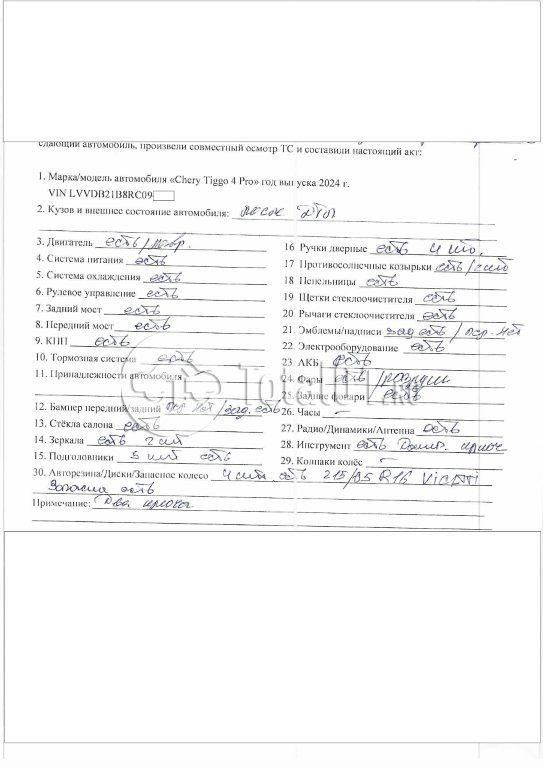 едающий автомобиль, произвели совместный осмотр ТС и составили настоящий акт:
1. Марка/модель автомобиля «Chery Tiggo 4 Pro» год выпуска 2024 г.
VIN LVVDB21B8RC09
2. Кузов и внешнее состояние автомобиля: после ДТП
3. Двигатель есть/повр.
4. Система питания есть
5. Система охлаждения есть
6. Рулевое управление есть
7. Задний мост есть
8. Передний мост есть
9. КПП есть
10. Тормозная система есть
11. Принадлежности автомобиля
12. Бампер передний/задний пер. нет/зад. есть
13. Стёкла салона есть
14. Зеркала есть 2 шт
15. Подголовники 5 шт есть
16 Ручки дверные есть 4 шт.
17 Противосолнечные козырьки есть/2 шт
18 Пепельницы есть
19 Щетки стеклоочистителя есть
20. Рычаги стеклоочистителя есть
21. Эмблемы/надписи зад есть / пер. нет
22. Электрооборудование есть
23 АКБ есть
24. Фары есть/разруш
25. Задние фонари есть
26. Часы –
27. Радио/Динамики/Антенна есть
28. Инструмент есть Домкр. крюк
29. Колпаки колёс –
30. Авторезина/Диски/Запасное колесо 4 шт. есть 215/ R16
Запаска есть
Примечание: Два ключа
TotalO1.ru